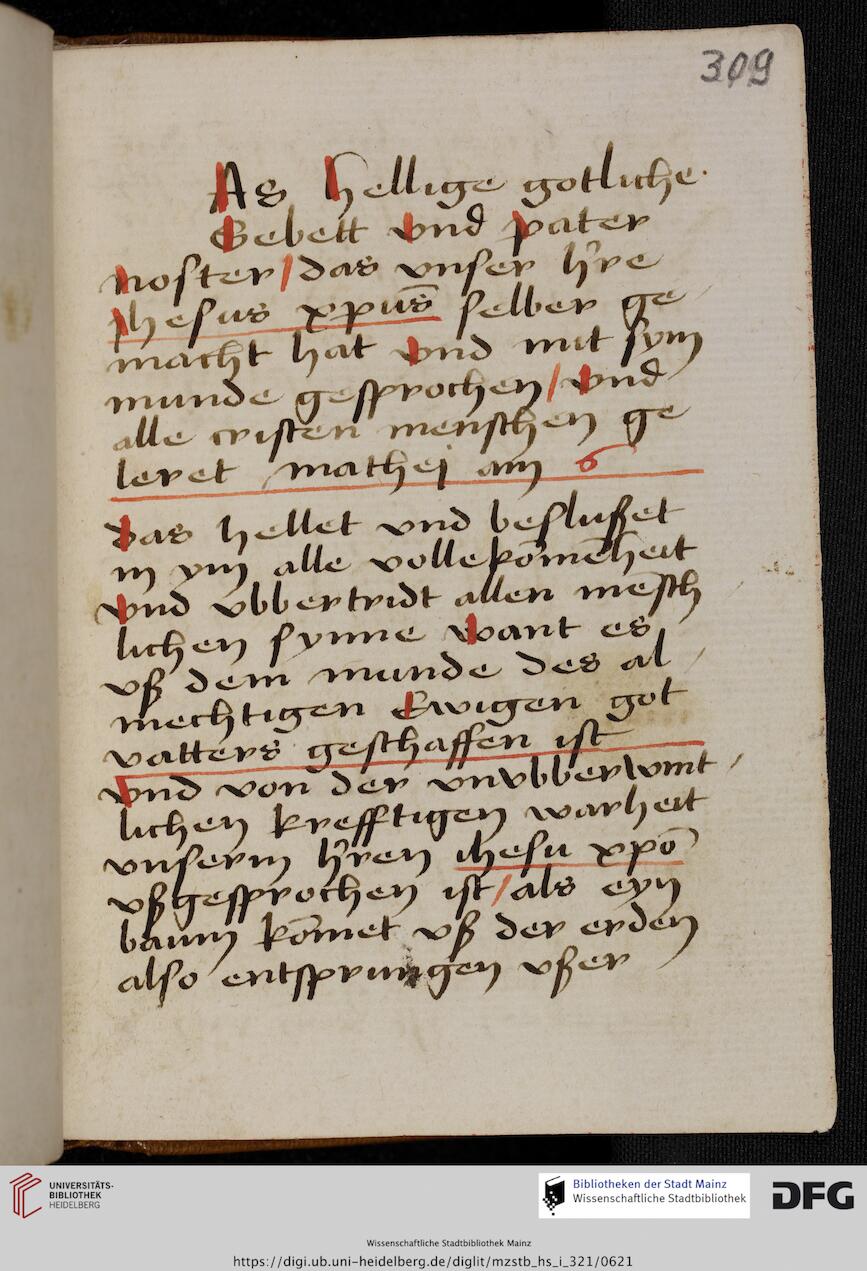 309
As hellige gotliche·
Gebett vnd pater
noster / das vnser h're
jhesus xpūs selber ge
macht hat vnd mit sym
munde gesprochen / vnd
alle cristen menschen ge
leret mathej am 6
das hellet vnd beslußet
in ym alle vollekōmēheit
vnd vbbertridt allen mēsch
lichen synne want es
vß dem munde des al
mechtigen Ewigen got
vatters geschaffen ist
vnd von der vnvbberwint
lichen krefftigen warheit
vnserm h'ren ihesu xpō
vßgesprochen ist / als eyn
baum kōmet vß der erden
also entsprungen vßer
UNIVERSITÄTS-
BIBLIOTHEK
HEIDELBERG
Bibliotheken der Stadt Mainz
Wissenschaftliche Stadtbibliothek
DFG
Wissenschaftliche Stadtbibliothek Mainz
https://digi.ub.uni-heidelberg.de/diglit/mzstb_hs_i_321/0621